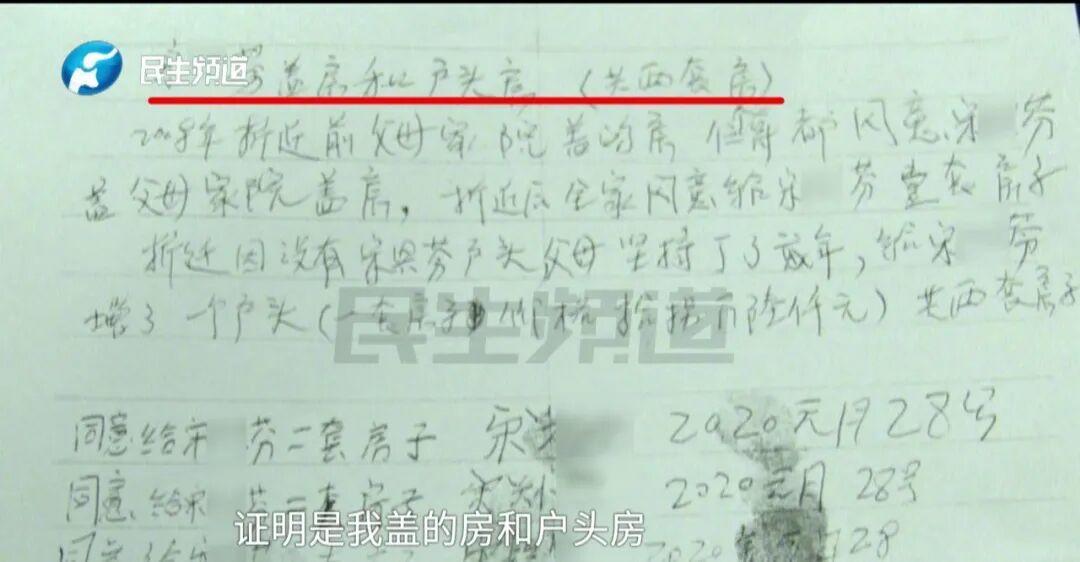 民生频道
盖房和户头房（共两套房）
2008年拆迁前父母家院盖的房 都同意宋 芬
盖父母家院盖房，拆迁后全家同意给宋 芬壹套房子
拆迁因没有宋 芬户头父母坚持了3 年，给宋 芬
增了一个户头（一套房子 陆仟元）共两套房子
民生频道
同意给宋 芬二套房子 宋 2020元月28号
同意给宋 芬二套房子 宋 2020元月28号
证明是我盖的房和户头房
同意给宋 2020 月28